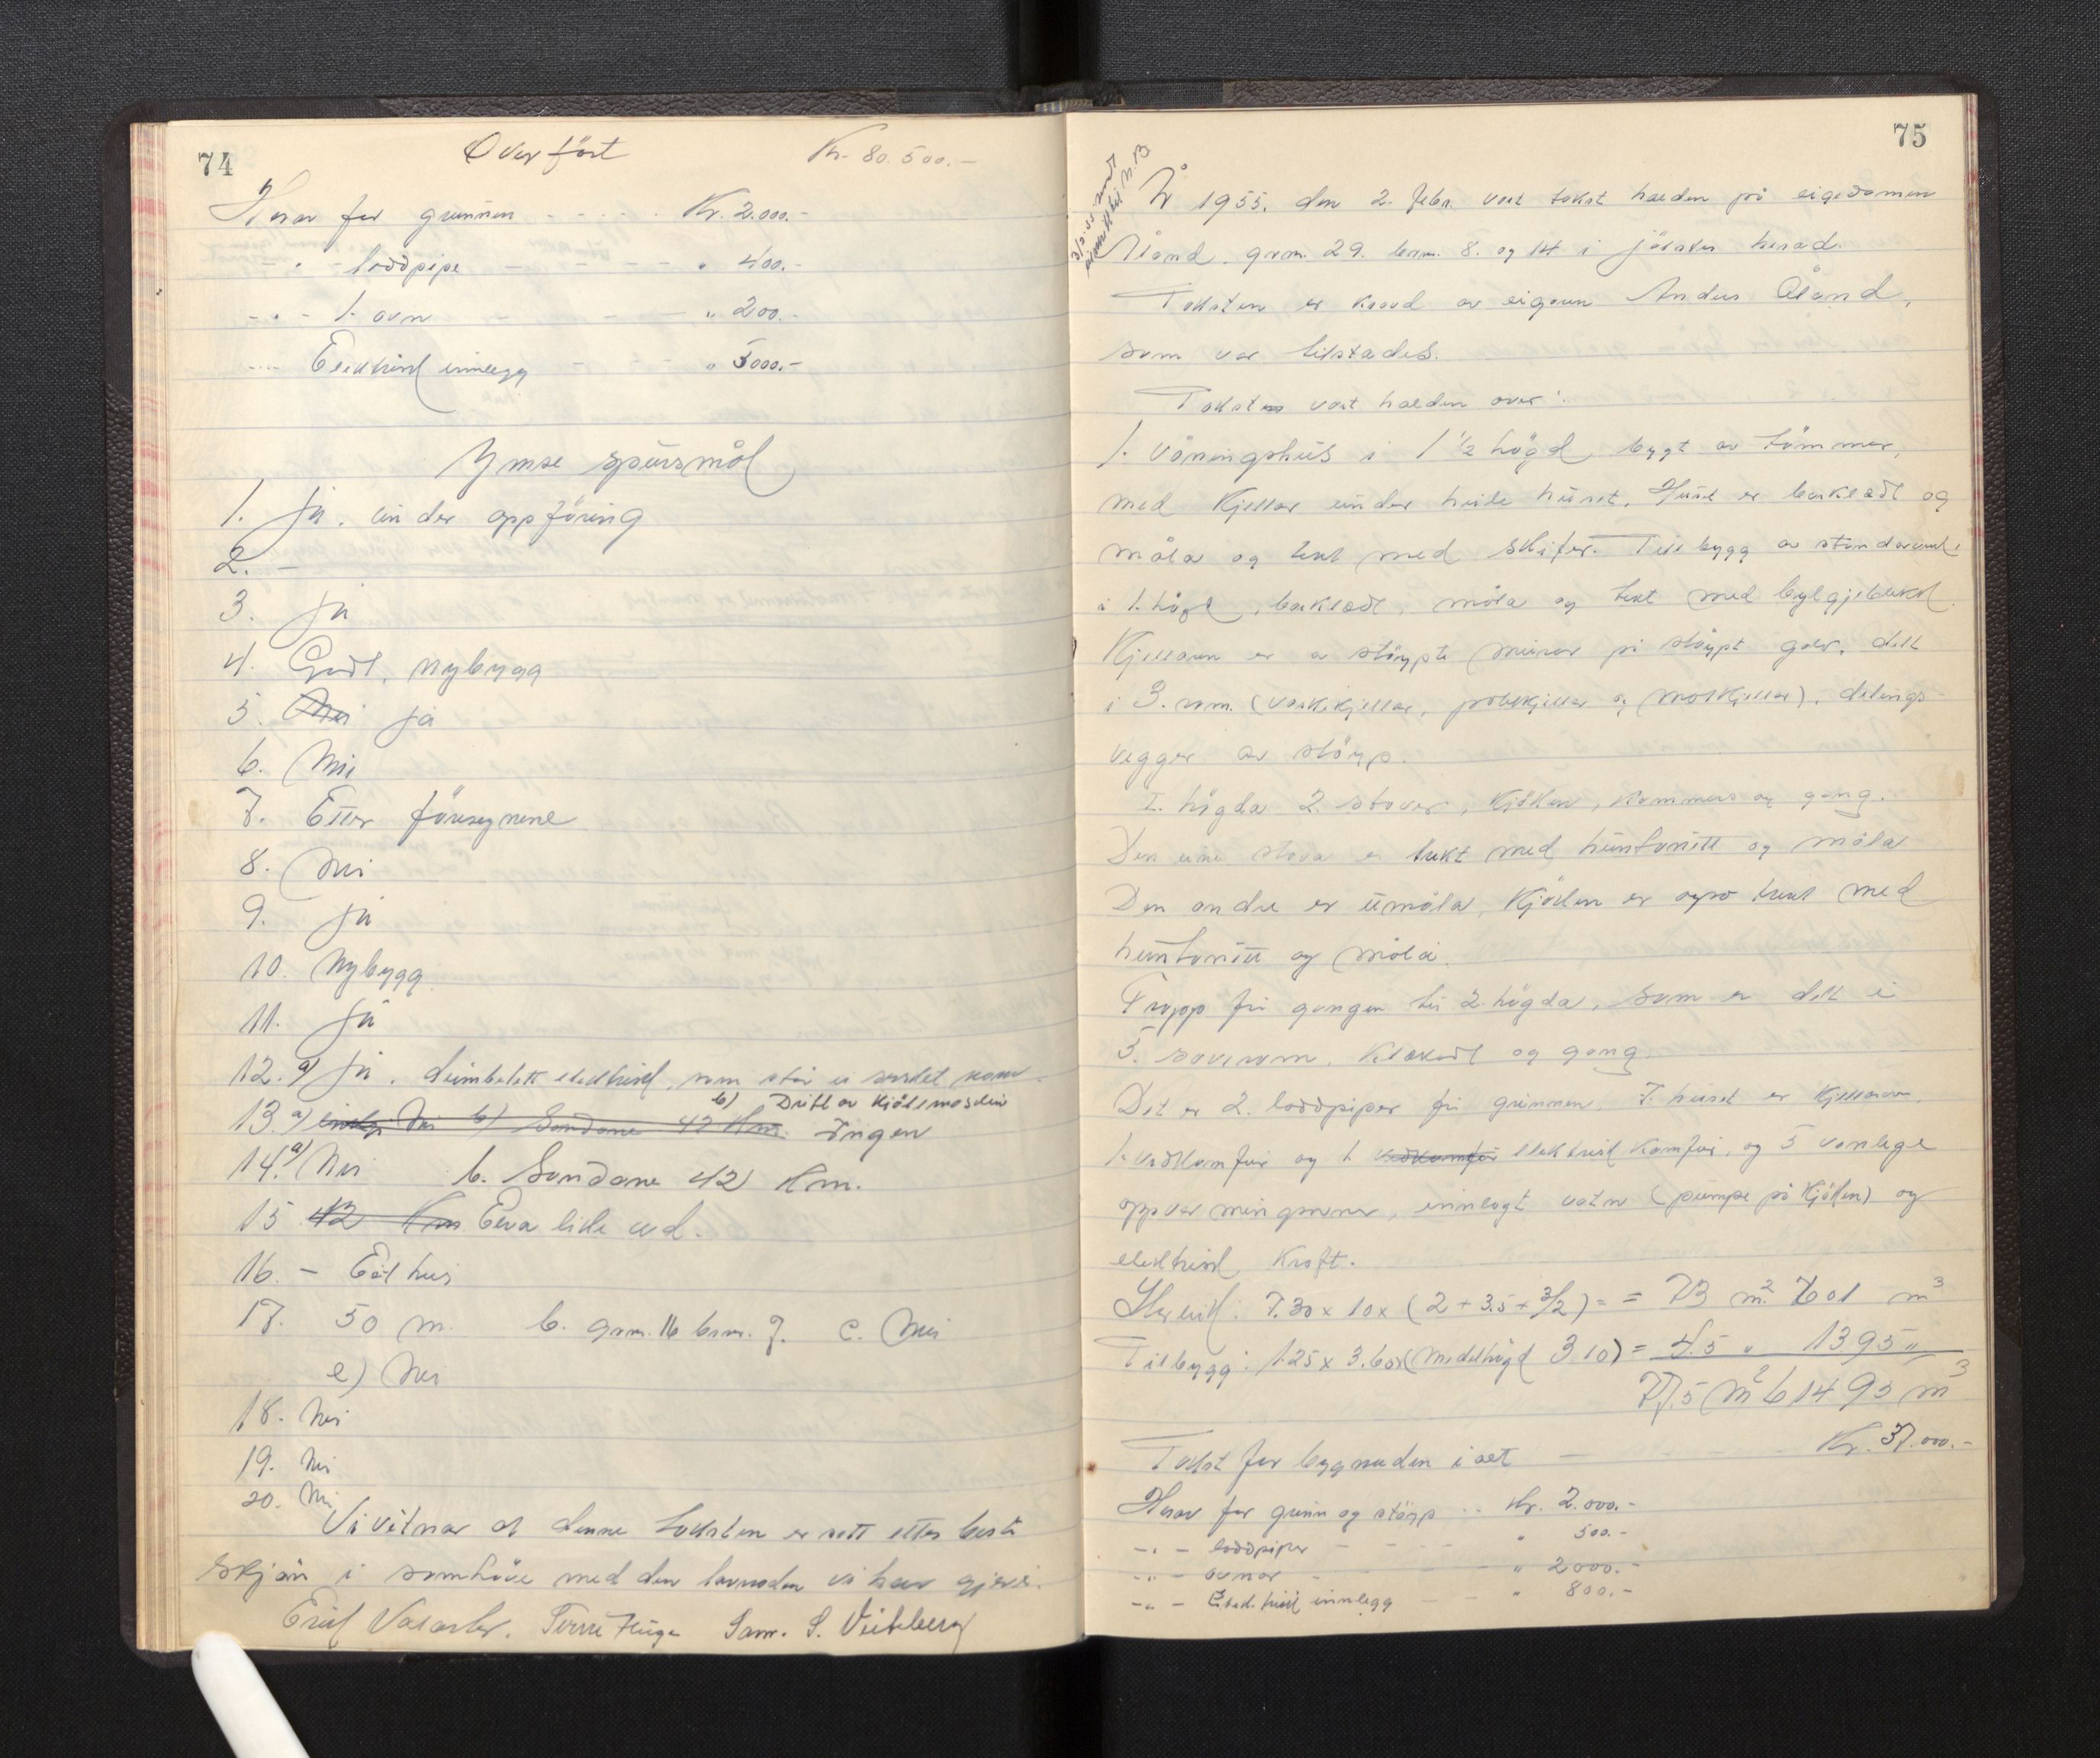 74
Overført Kr. 80.500.-
Herav for grunnen - - - - Kr. 2.000.-
- " - loddpipe - - - - " 400.-
- " - 1. ovn - - - " 200.-
- " - Elektrisk innlegg - - - " 5000.-
Ymse spursmål
1. Ja. under oppföring
2. -
3. Ja
4. Godt, nybygg
5. Nei ja
6. Nei
7. Etter föresegnene
8. Nei
9. Ja
10. Nybygg
11. Ja
12. a) Ja. elektrisk, som står i
b) Drift av kjölemaskin
13. a) Nei b) Sandane 42 Km. Ingen
14. a) Nei b. Sandane 42 Km.
15. 42 Km Elva like ved.
16. - Eldhus
17. 50 m. b. grnr. 16 brnr. 7. c. Nei
e) Nei
18. Nei
19. Nei
20. Nei
Vi vitnar at denne taksten er sett etter beste
skjön i samhöve med den lovnaden vi har gjeve.
Sam. S.
75
År 1955, den 2. febr. vart takst halden på eigedomen
Åland. grnr. 29. brnr. 8. og 14 i Jölster herad.
Taksten er kravd av eigaren Anders Åland,
som var tilstades.
Taksten vart halden over:
1. Våningshus i 1 1/2 högd bygt av tömmer,
med kjellar under heile huset. Huset er bordkledt og
måla og tekt med skifer. Tilbygg av
i 1. högd, bordkledt, måla og tekt med bylgjeblekk.
Kjellaren er av stöypte murar på stöypt golv, delt
i 3. rom. (vaskekjellar, potetkjellar og matkjellar), delings-
vegger av stöyp.
I. högda 2. stover, kjöken, kammers og gang.
Den eine stova er trekt med huntonitt og måla
Den andre er umåla, Kjöken er også trekt med
huntonitt og måla.
Trapp frå gangen til 2. högda, som er delt i
5. soverom. og gang.
Det er 2. loddpiper frå grunnen. I huset er
1. vedkomfyr og 1 vedkomfyr elektrisk komfyr, og 5 vanlege
oppvarmingsovnar, innlagt vatn (pumpe på kjöken) og
elektrisk kraft.
Storleik: 7.30 x 10 x (2 + 3.5 + 3/2) = = 73 m² 601 m³
Tilbygg: 1.25 x 3.60 x (medelhögd 3 10) = 4.5 " 1395 "
77.5 m² 61495 m³
Takst for bygnaden i alt - Kr. 37.000.-
Herav for grunn og stöyp - - Kr. 2.000.-
- " - loddpiper - - - - " 500.-
- " - ovnar - - - " 2000.-
- " - Elektrisk innlegg - - " 800.-